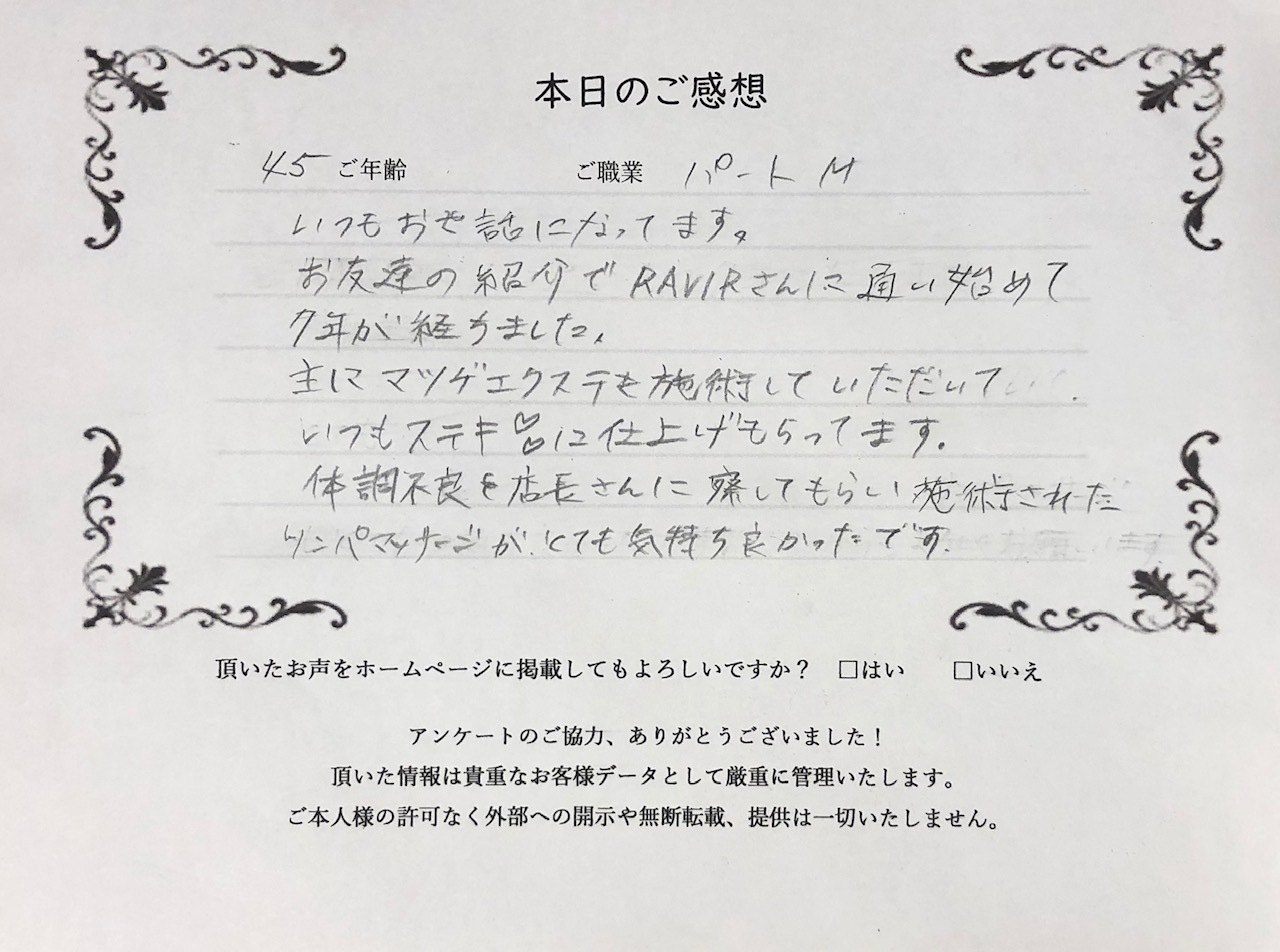 本日のご感想
45 ご年齢 ご職業 パート M
いつもお世話になってます。
お友達の紹介でRAVIRさんに通い始めて
7年が経ちました。
主にマツゲエクステを施術していただいて
いつもステキ♡♡に仕上げもらってます。
体調不良を店長さんに察してもらい施術された
リンパマッサージが、とても気持ち良かったです。
頂いたお声をホームページに掲載してもよろしいですか？ □はい □いいえ
アンケートのご協力、ありがとうございました！
頂いた情報は貴重なお客様データとして厳重に管理いたします。
ご本人様の許可なく外部への開示や無断転載、提供は一切いたしません。